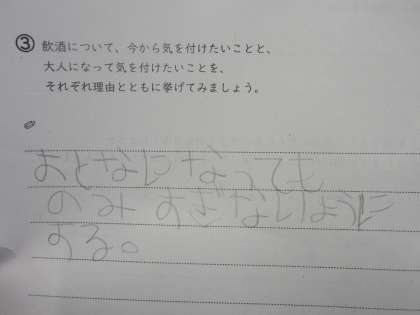 ③ 飲酒について、今から気を付けたいことと、
大人になって気を付けたいことを、
それぞれ理由とともに挙げてみましょう。
おとなになっても
のみすぎないように
する。